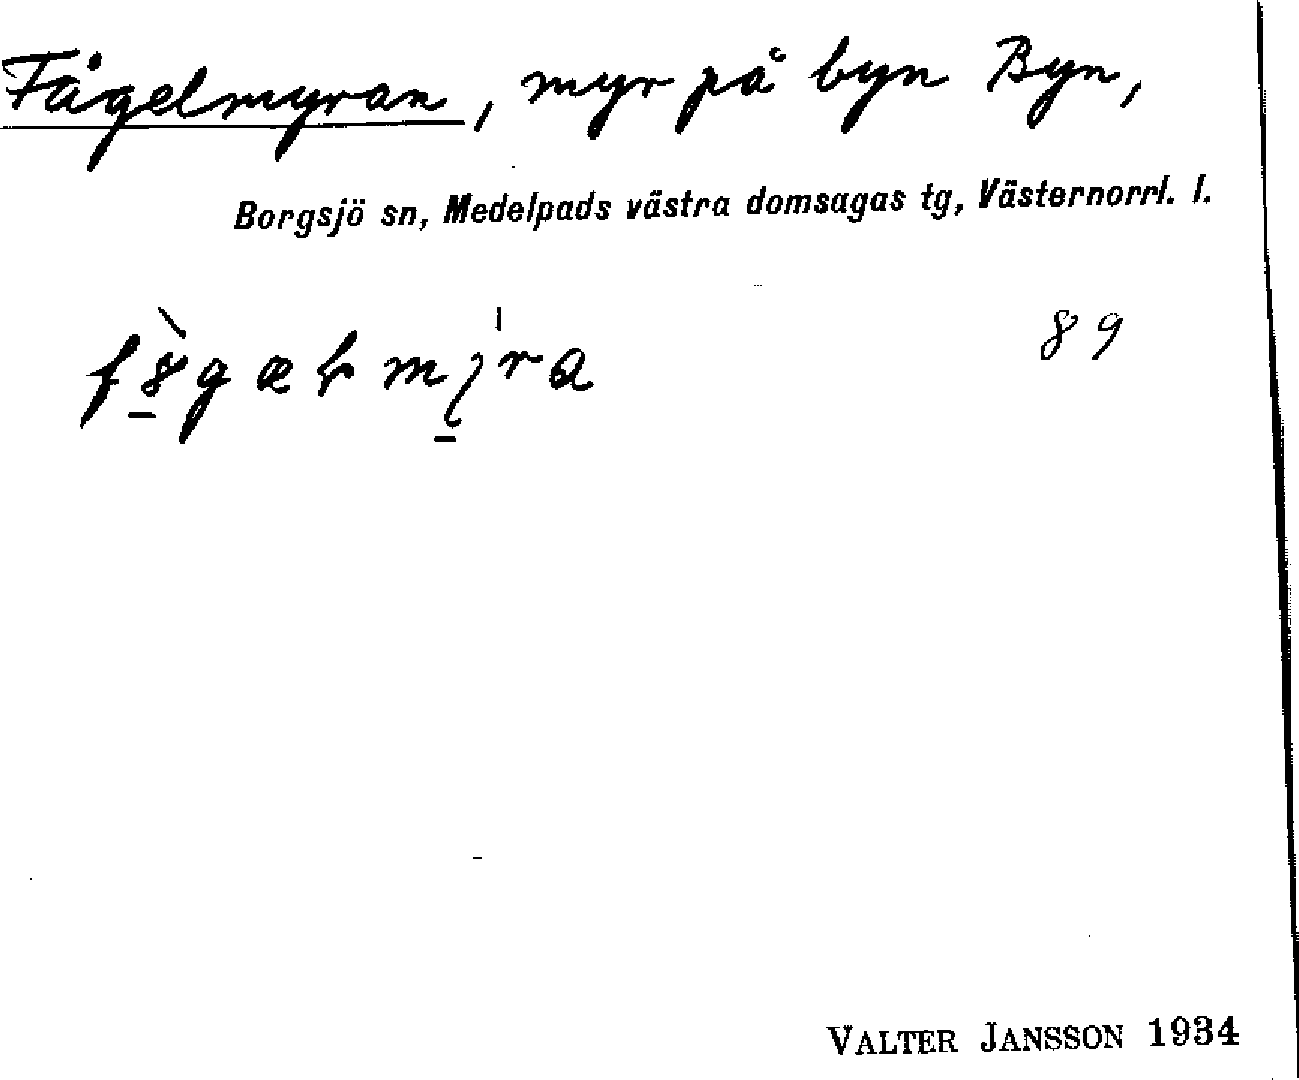 Fågelmyran, myr på byn Byn,
Borgsjö sn, Medelpads västra domsagas tg, Västernorrl. l.
89
VALTER JANSSON 1934